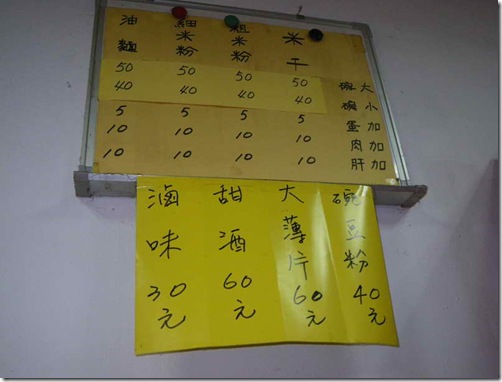 大碗
小碗
加蛋
加肉
加肝
米干
50
40
5
10
10
粗米粉
50
40
5
10
10
細米粉
50
40
5
10
10
油麵
50
40
5
10
10
碗豆粉40元
大薄片60元
甜酒60元
滷味30元